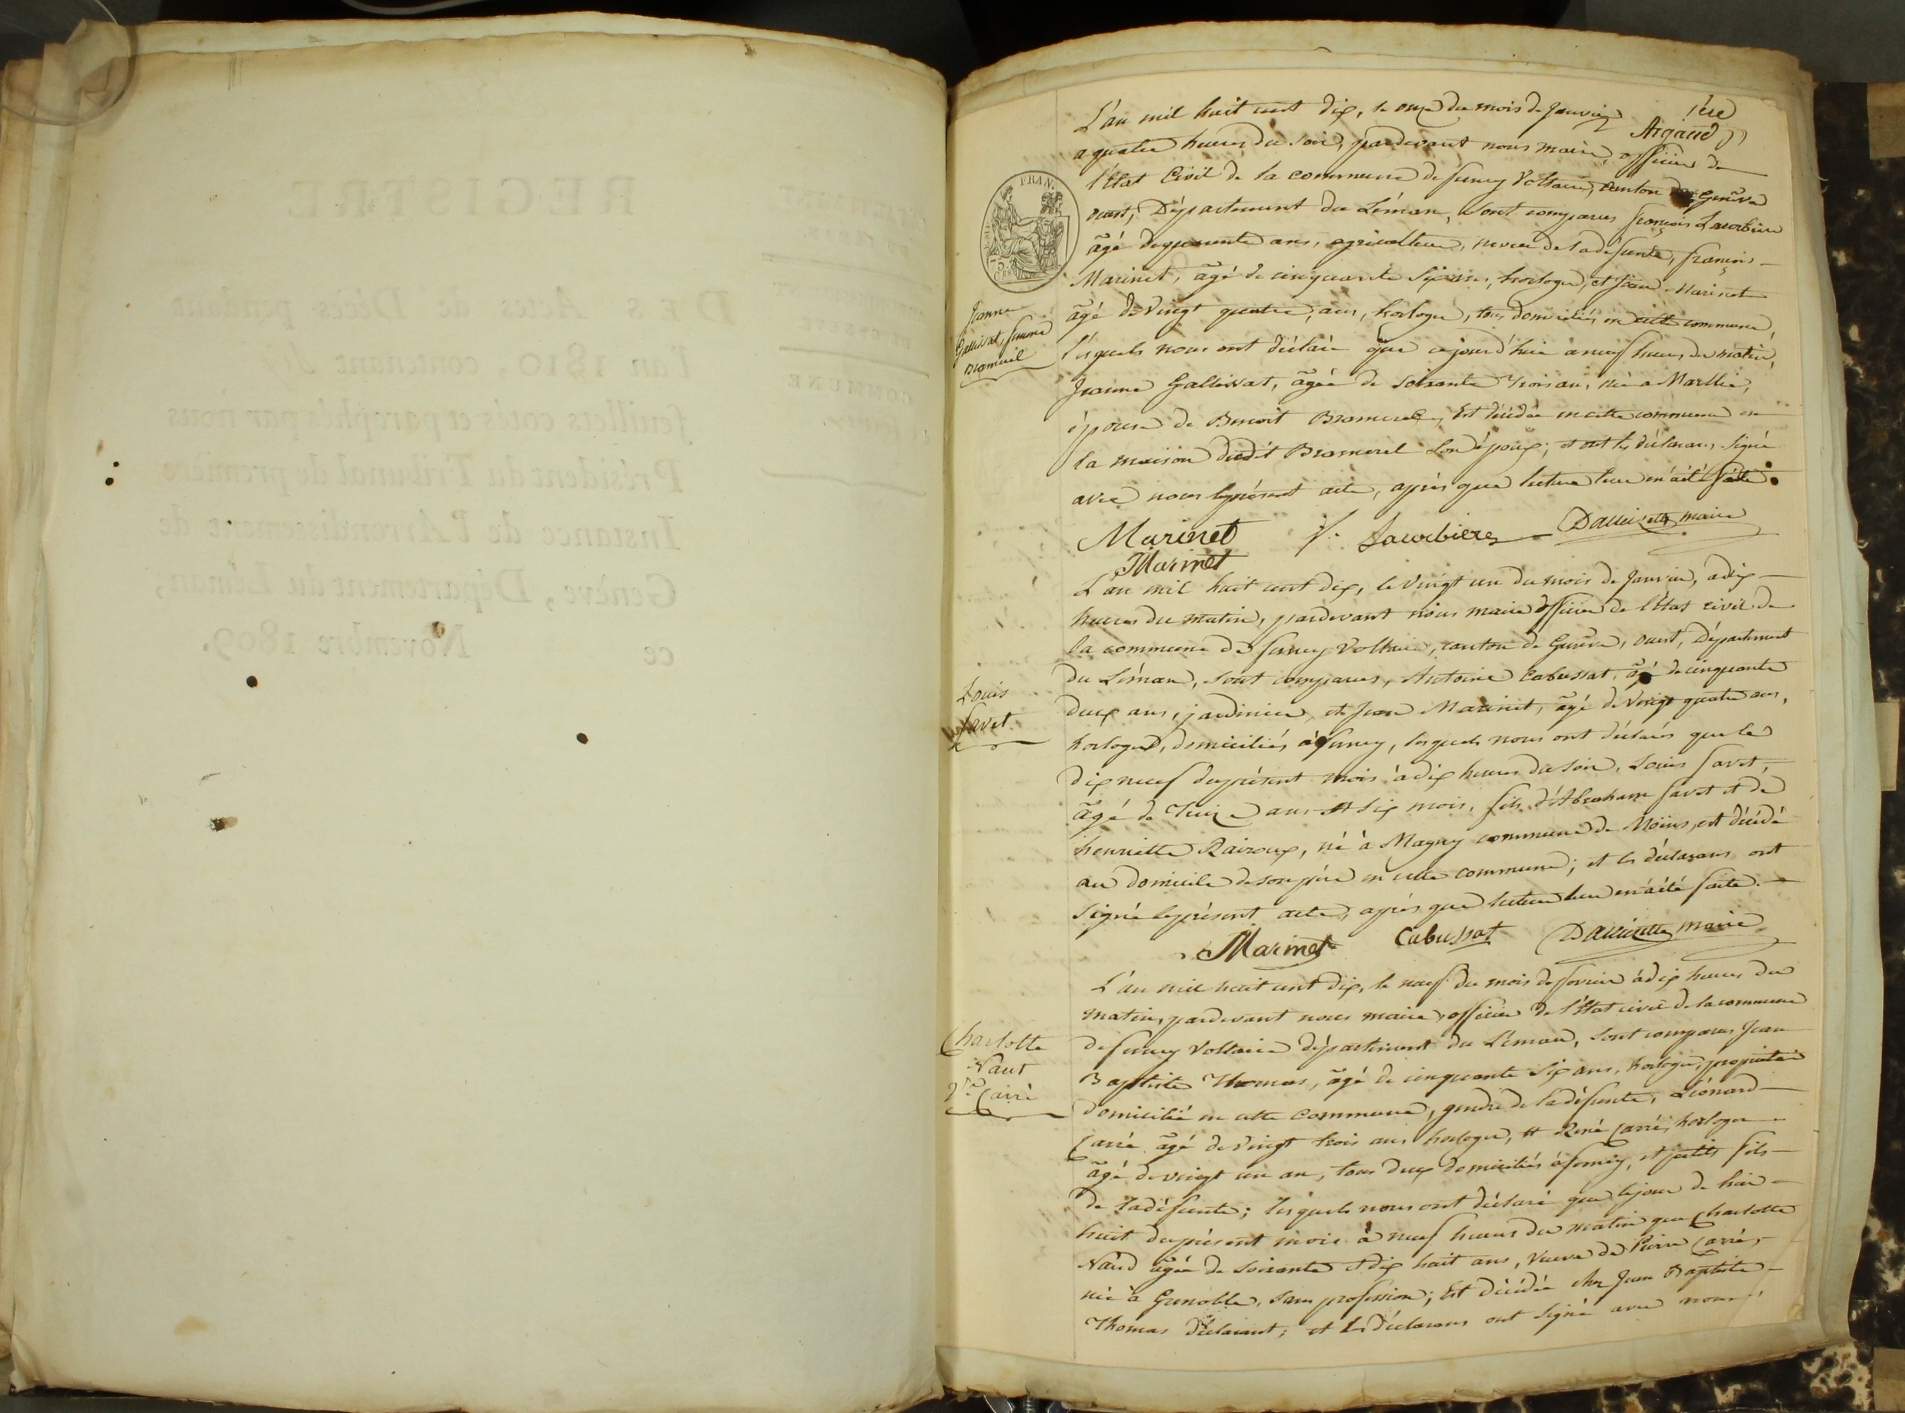 1ère
Argand
L'an mil huit cent dix, le onze du mois de Janvier
a quatre heures du soir, pardevant nous maire, officier de
l'Etat Civil de la commune de ferney Voltaire, canton de Genève
ouest, Département du Léman, sont comparus françois Lacorbière
âgé de ans, agriculteur, neveu de la défunte, françois
Marinet, âgé de cinquante six ans, horloger, et Jean Marinet
âgé de vingt quatre ans, horloger, tous domiciliés en cette commune,
lesquels nous ont déclaré que cejourd'hui à neuf heures du matin,
Jeanne Gallissat, âgée de soixante trois ans, née a
épouse de Benoit Bramerel, Est décédée en cette commune en
la maison dudit Bramerel son époux; et ont les déclarans signé
avec nous le présent acte, après que lecture leur en a été faite.
Marinet f. Lacorbière Dallizette maire
Marinet
Jeanne
Gallissat, femme
Bramerel
L'an mil huit cent dix, le vingt un du mois de Janvier, a dix
heures du matin, pardevant nous maire officier de l'Etat civil de
la commune de ferney Voltaire, canton de Genève, ouest, Département
du Léman, sont comparus, Antoine Cabussat, âgé de cinquante
deux ans, jardinier, et Jean Marinet, âgé de vingt quatre ans,
horloger, domiciliés à ferney, lesquels nous ont déclarés que le
dix neuf du présent mois à dix heures du soir, Louis favet,
âgé de treize ans et six mois, fils d'Abraham favet et de
henriette Rairoux, né à Magny commune de Moëns, est décédé
au domicile de son père en cette commune; et les déclarans ont
signé le présent acte, après que lecture leur en a été faite.
Marinet Cabussat Dallizette maire
Louis
favet
L'an mil huit cent dix, le neuf du mois de fevrier à dix heures du
matin, pardevant nous maire officier de l'Etat civil de la commune
de ferney Voltaire département du Léman, sont comparus Jean
Baptiste Thomas, âgé de cinquante six ans, horloger, propriétaire
domicilié en cette commune, gendre de la défunte, Léonard
Carré âgé de vingt trois ans horloger, et René Carré, horloger
âgé de vingt un an, tous deux domiciliés à ferney, et petits fils
de la défunte; lesquels nous ont déclaré que le jour de hier
huit du présent mois à neuf heures du matin que Charlotte
Naud âgée de soixante et dix huit ans, veuve de Pierre Carré,
née à Grenoble, sans profession; Est décédée chez Jean Baptiste
Thomas déclarant; et les déclarans ont signé avec nous
Charlotte
Naut
Vve Carré
FRAN.
REGISTRE
DES Actes de Décès pendant
l'an 1810 contenant
feuillets cotés et paraphés par nous
Président du Tribunal de première
Instance de l'Arrondissement de
Genève, Département du Léman,
ce Novembre 1809.
COMMUNE